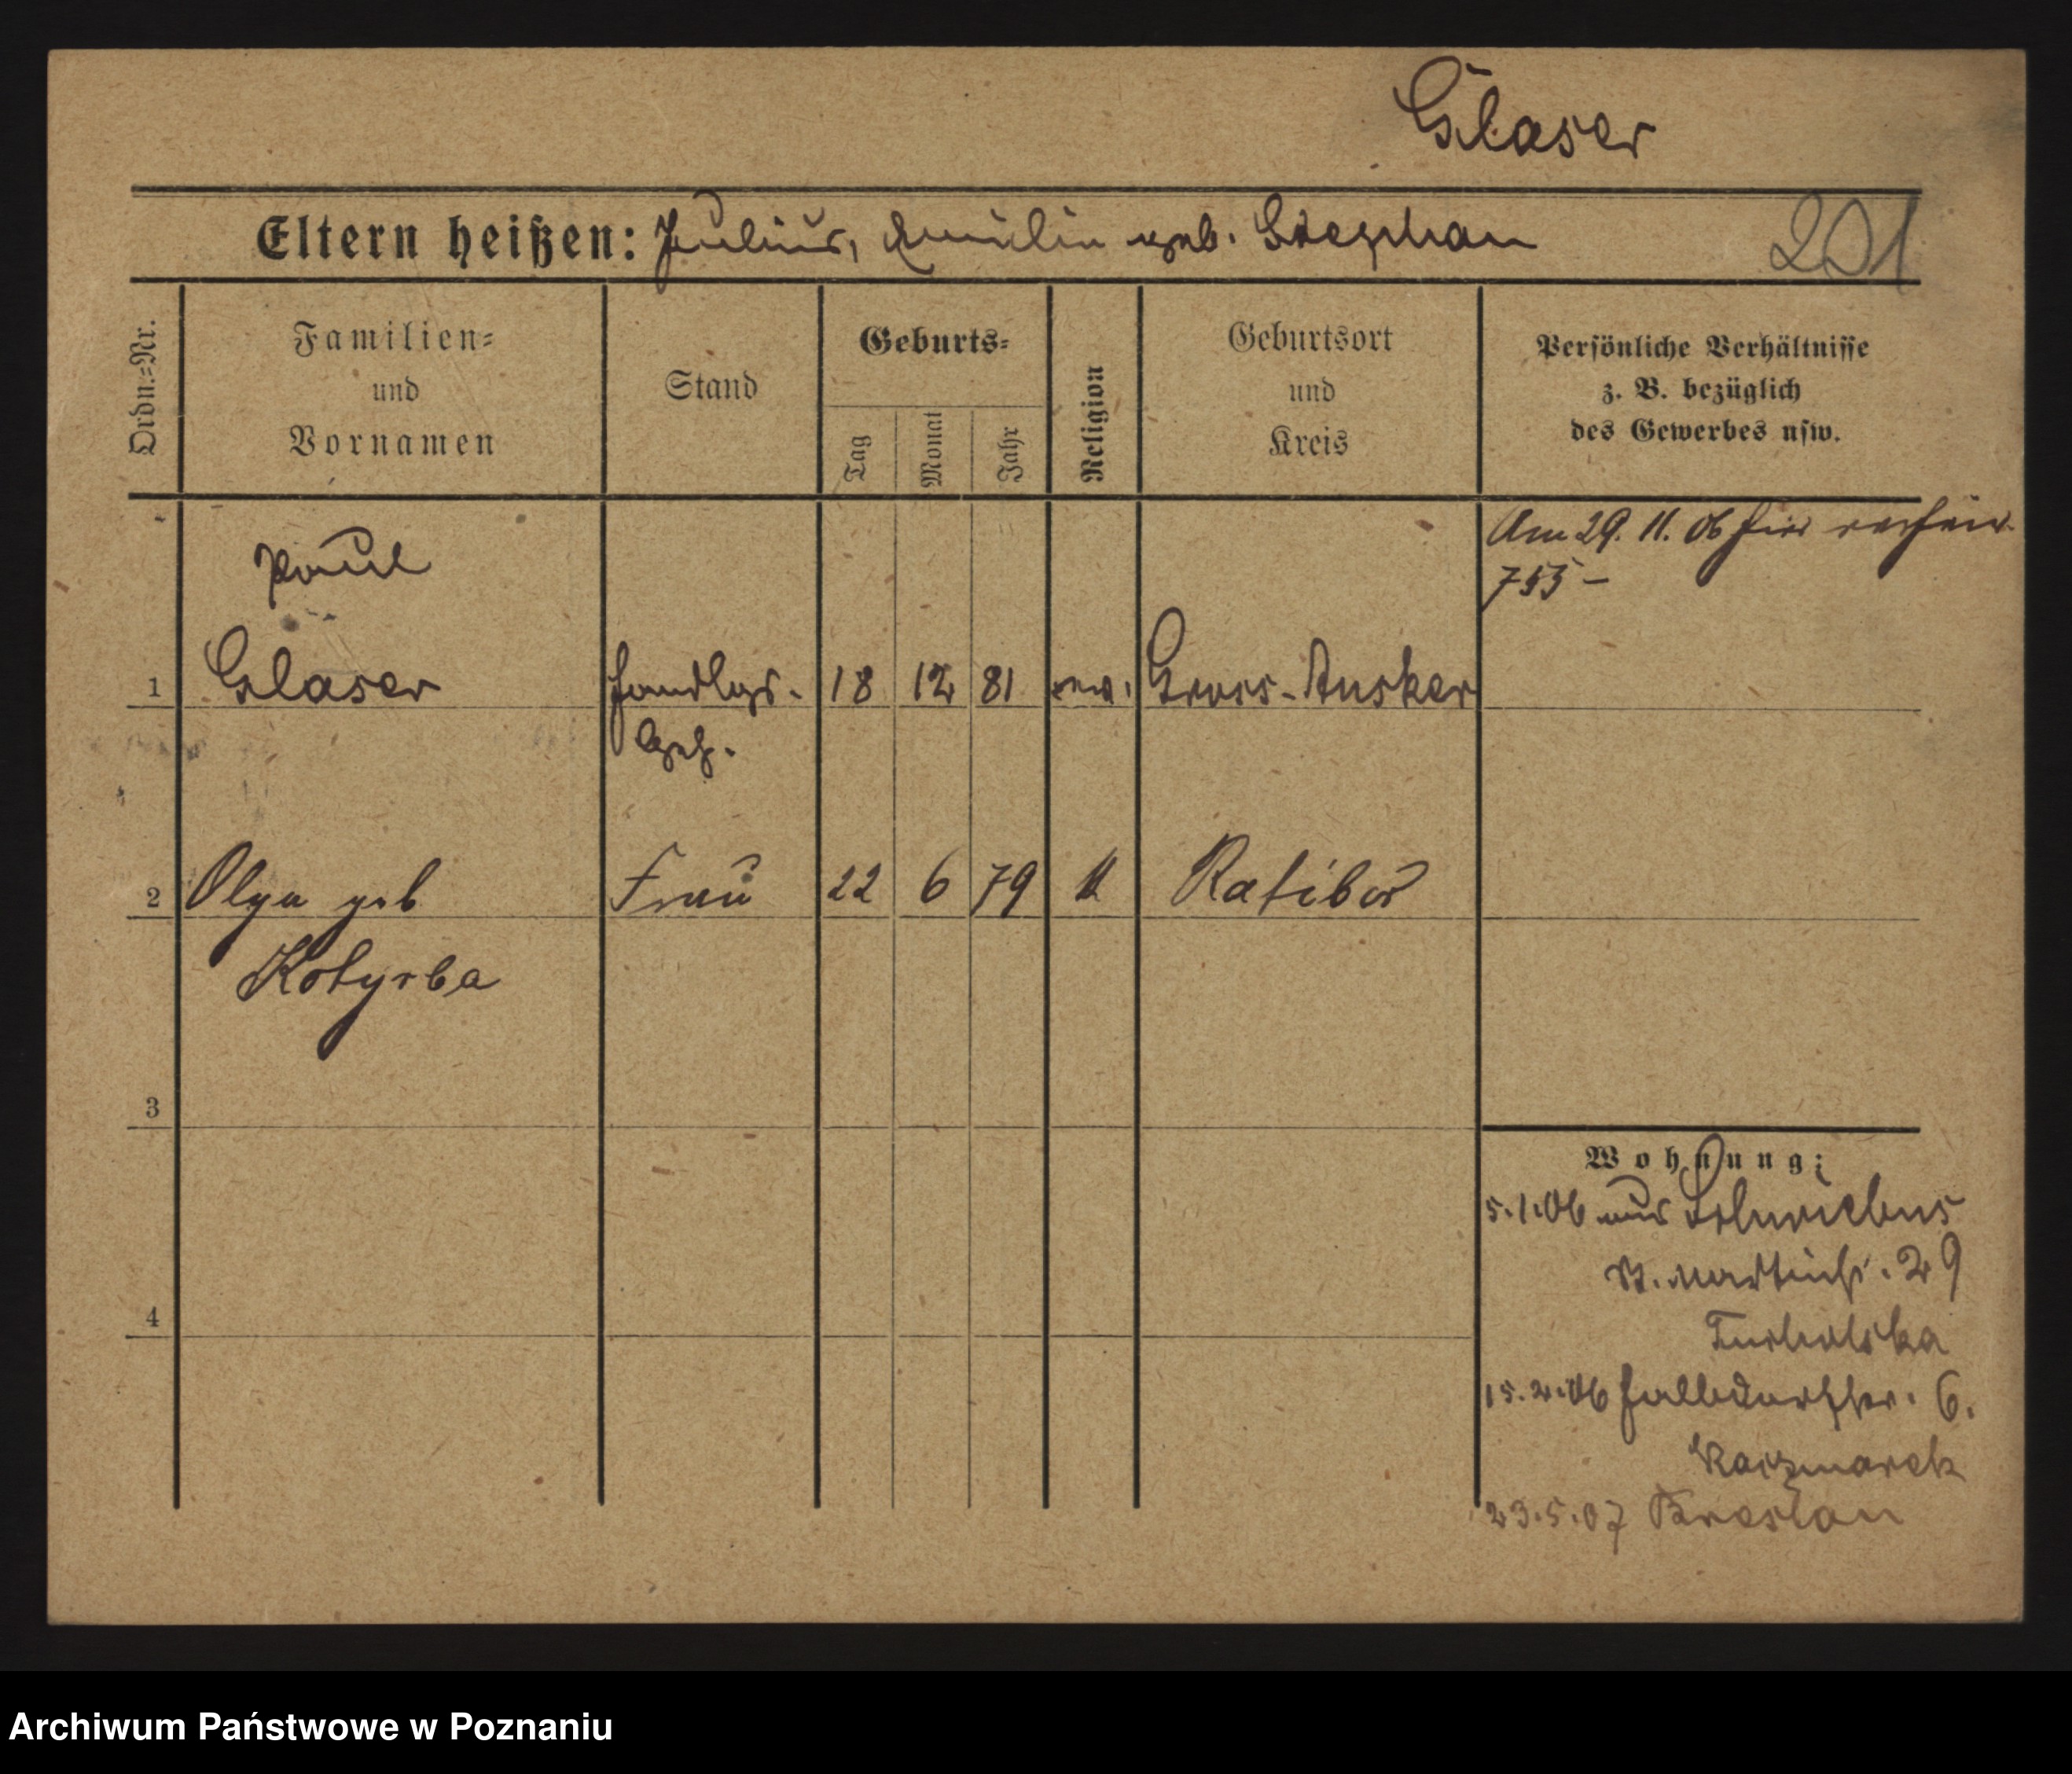 Glaser
Eltern heißen: Julius, Emilie geb. Stephan
201
Ordn.=Nr.
Familien=
und
Vornamen
Stand
Geburts=
Tag
Monat
Jahr
Religion
Geburtsort
und
Kreis
Persönliche Verhältnisse
z. B. bezüglich
des Gewerbes usw.
Am 29. 11. 06 hier verheir.
755 –
Paul
1 Glaser Handlgs. 18 12 81 ev. Gross-Ausker
Geh.
2 Olga geb Frau 22 6 79 k Ratibor
Kotyrba
3
4
Wohnung:
5.1.06 aus Schwiebus
St. Martinstr. 29
15.2.06 Halbdorfstr. 6.
Kaczmarek
23.5.07 Breslau
Archiwum Państwowe w Poznaniu